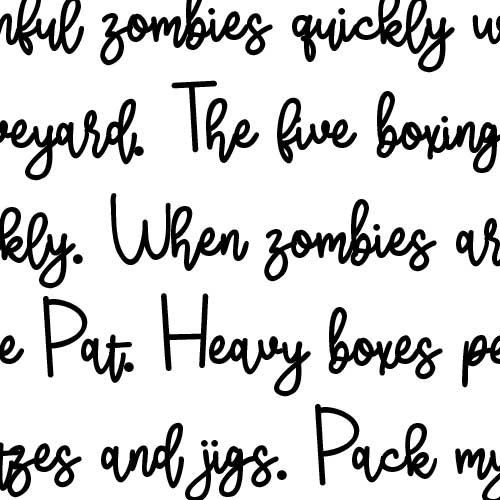 nful zombies quickly w
veyard. The five boxing
kly. When zombies ar
e Pat. Heavy boxes pe
tzes and jigs. Pack my